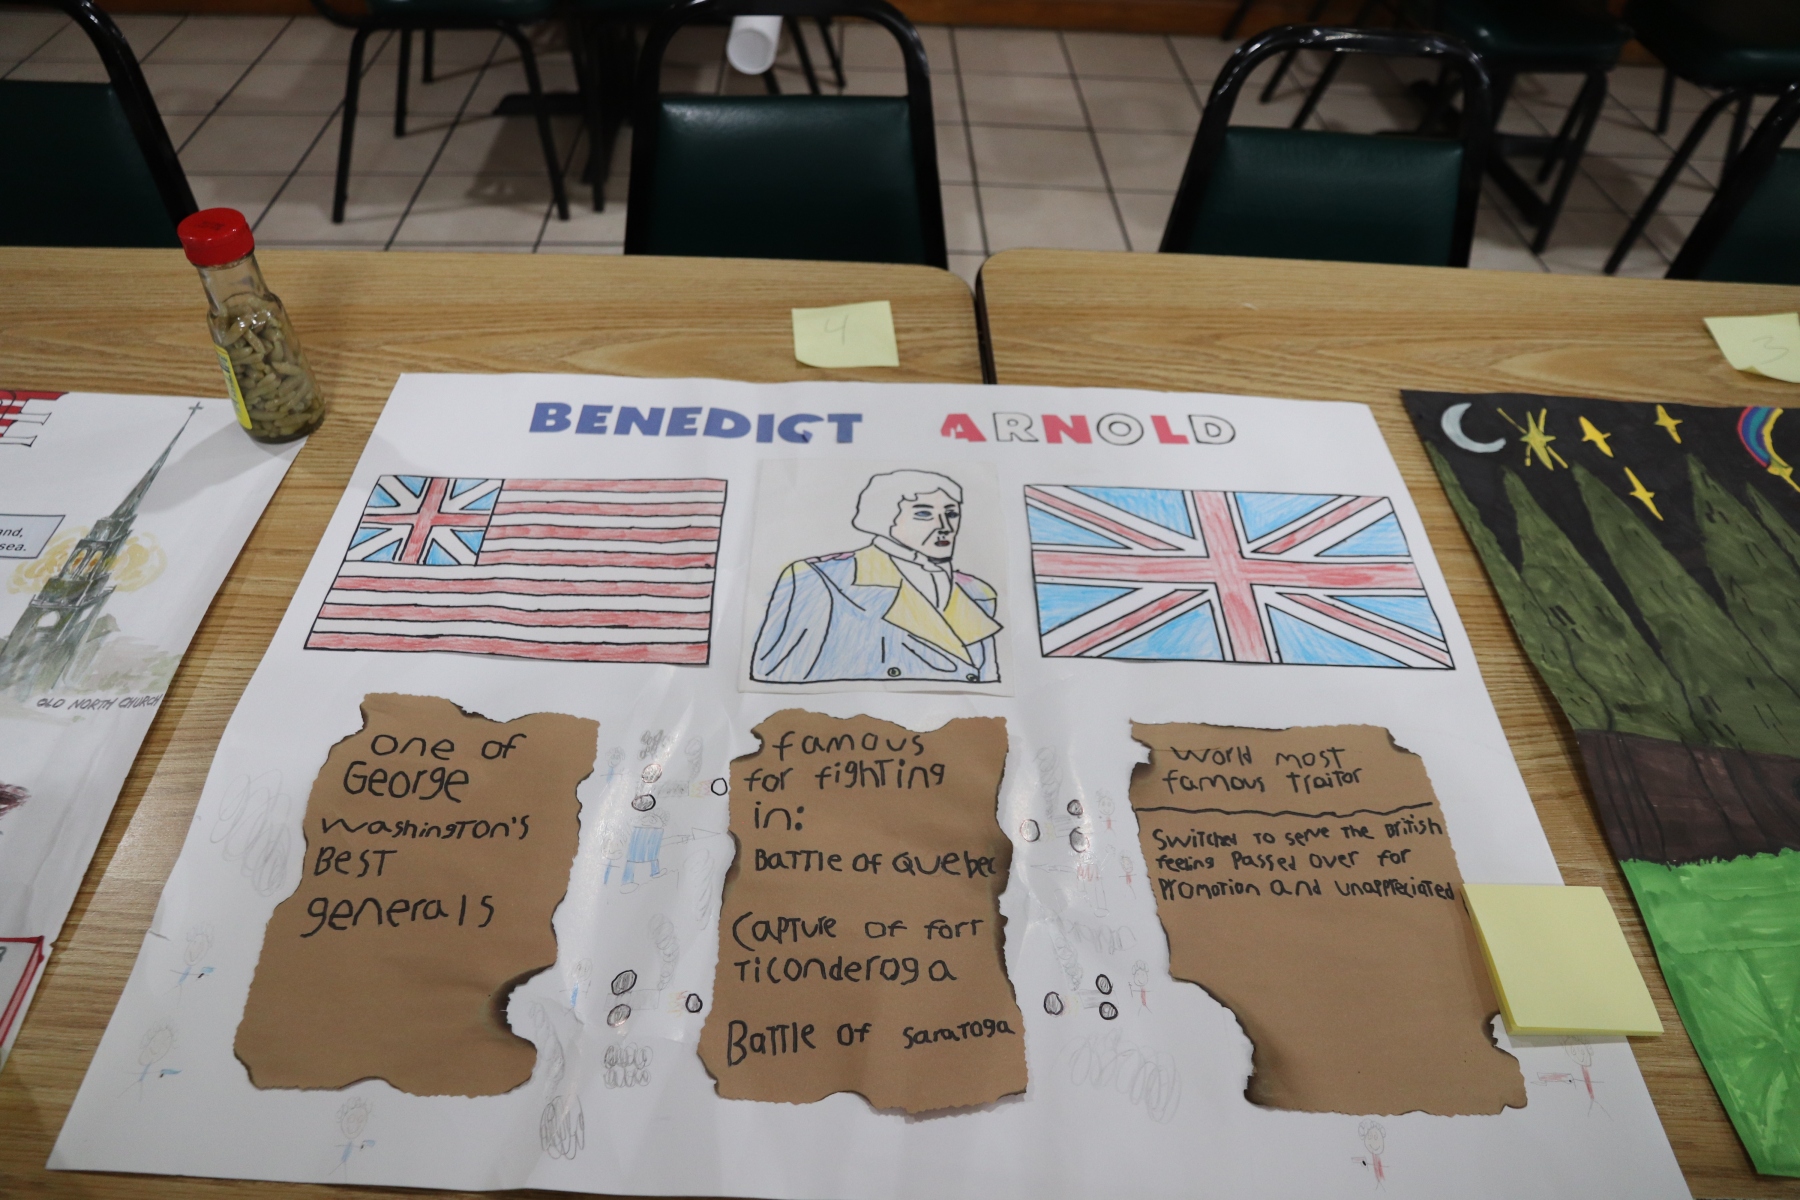 4
3
and,
sea.
OLD NORTH CHURCH
BENEDICT ARNOLD
one of
George
Washington's
Best
generals
famous
for fighting
in:
Battle of Quebec
Capture of fort
Ticonderoga
Battle of saratoga
World most
famous traitor
Switched to serve the British
feeling Passed over for
Promotion and unappreciated